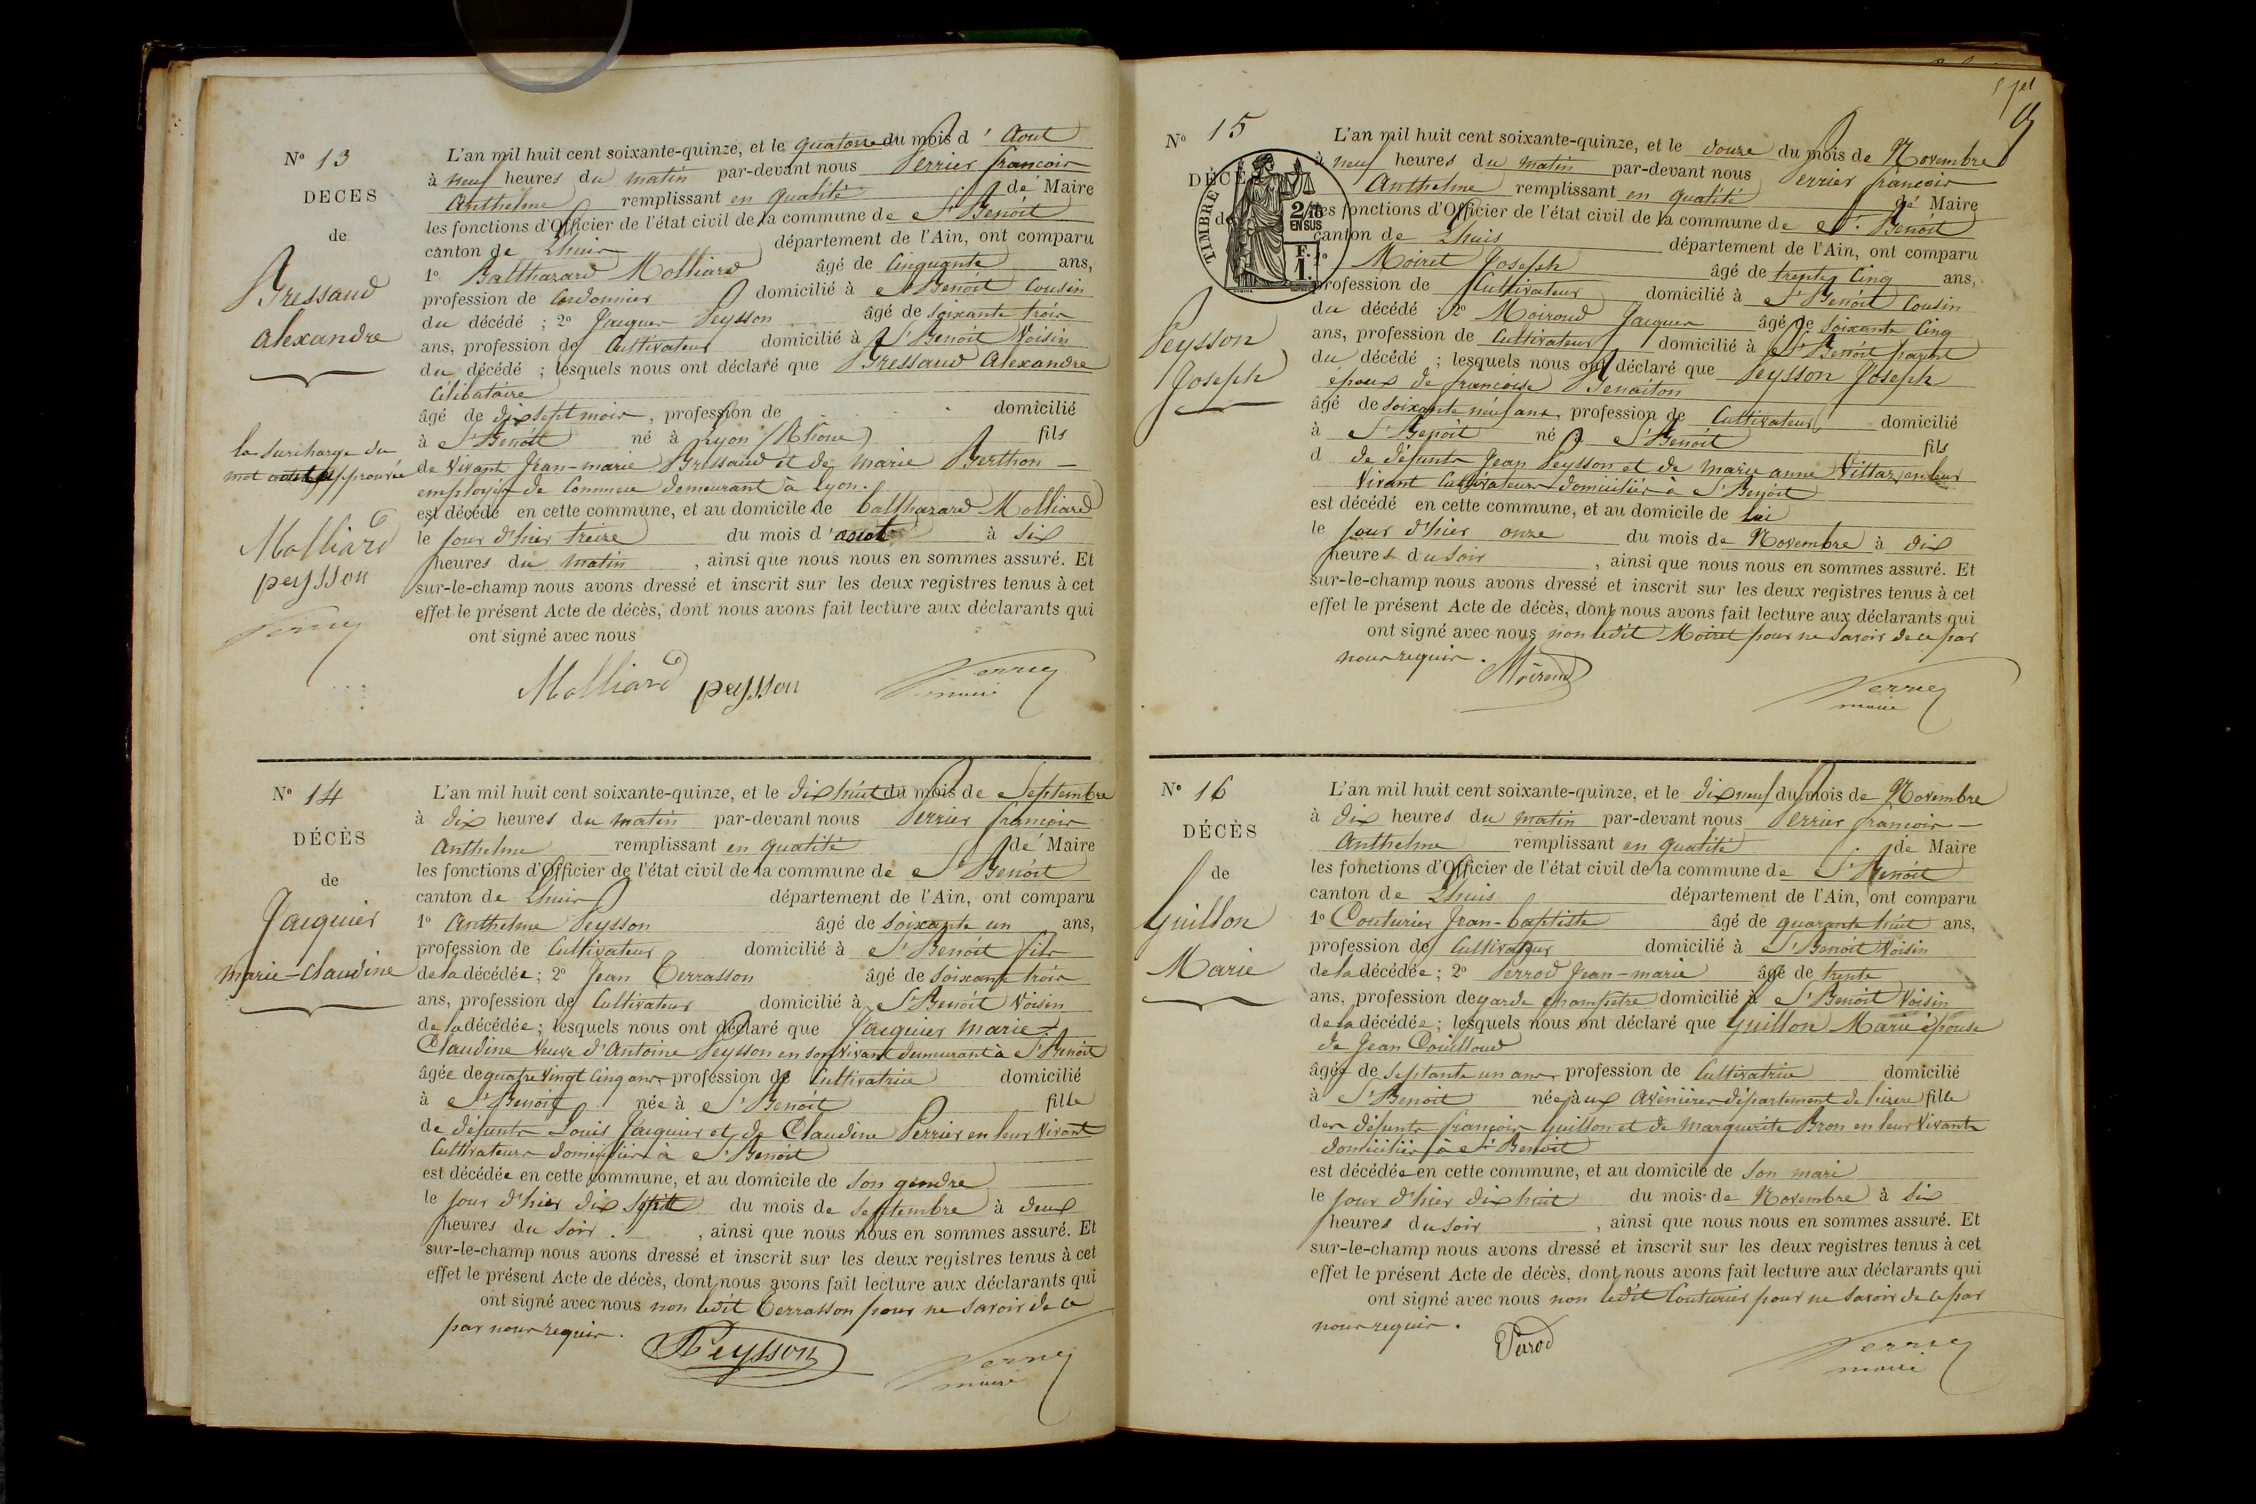 N° 13
DECES
de
Bressaud
alexandre
la surcharge du
mot aout approuvée
Molliard
peysson
L'an mil huit cent soixante-quinze, et le quatorze du mois d' Aout
à neuf heures du matin par-devant nous Perrier françois
Anthelme remplissant en qualité de Maire
les fonctions d'Officier de l'état civil de la commune de St Benoit
canton de Lhuis département de l'Ain, ont comparu
1° Balthazard Molliard âgé de Cinquante ans,
profession de Cordonnier domicilié à St Benoit Cousin
du décédé ; 2° Jacques Peysson âgé de soixante trois
ans, profession de Cultivateur domicilié à St Benoit Voisin
du décédé ; lesquels nous ont déclaré que Bressaud Alexandre
Célibataire
âgé de dix sept mois, profession de domicilié
à St Benoit né à Lyon (Rhône) fils
de vivant Jean-marie Bressaud et de marie Berthon
employés de Commerce demeurant à Lyon.
est décédé en cette commune, et au domicile de balthazard Molliard
le jour d'hier treize du mois d'aout à six
heures du matin, ainsi que nous nous en sommes assuré. Et
sur-le-champ nous avons dressé et inscrit sur les deux registres tenus à cet
effet le présent Acte de décès, dont nous avons fait lecture aux déclarants qui
ont signé avec nous
Molliard peysson
maire
N° 14
DÉCÈS
de
Jacquier
marie-claudine
L'an mil huit cent soixante-quinze, et le dix huit du mois de Septembre
à dix heures du matin par-devant nous Perrier françois
Anthelme remplissant en qualité de Maire
les fonctions d'Officier de l'état civil de la commune de St Benoit
canton de Lhuis département de l'Ain, ont comparu
1° Anthelme Peysson âgé de soixante un ans,
profession de Cultivateur domicilié à St Benoit fils
de la décédée ; 2° Jean Terrasson âgé de soixante trois
ans, profession de Cultivateur domicilié à St Benoit Voisin
de la décédée ; lesquels nous ont déclaré que Jacquier Marie-
Claudine Veuve d'Antoine Peysson en son vivant demeurant à St Benoit
âgée de quatre vingt cinq ans profession de Cultivatrice domicilié
à St Benoit née à St Benoit fille
de défunts Louis Jacquier et de Claudine Perrier en leur Vivant
Cultivateurs domiciliés à St Benoit
est décédée en cette commune, et au domicile de son gendre
le jour d'hier dix sept du mois de septembre à deux
heures du soir, ainsi que nous nous en sommes assuré. Et
sur-le-champ nous avons dressé et inscrit sur les deux registres tenus à cet
effet le présent Acte de décès, dont nous avons fait lecture aux déclarants qui
ont signé avec nous non ledit Terrasson pour ne savoir de ce
par nous requis.
Peysson
maire
N° 15
DÉCÈ
de
TIMBRE
2/10
EN SUS
F.
1.
Peysson
Joseph
L'an mil huit cent soixante-quinze, et le douze du mois de Novembre
à neuf heures du matin par-devant nous Perrier françois
Anthelme remplissant en qualité de Maire
les fonctions d'Officier de l'état civil de la commune de St Benoit
canton de Lhuis département de l'Ain, ont comparu
1° Moiret Joseph âgé de trente Cinq ans,
profession de Cultivateur domicilié à St Benoit Cousin
du décédé ; 2° Moiroud Jacques âgé de soixante Cinq
ans, profession de Cultivateur domicilié à St Benoit parent
du décédé ; lesquels nous ont déclaré que Peysson Joseph
époux de françoise Benaiton
âgé de soixante neuf ans profession de Cultivateur domicilié
à St Benoit né à St Benoit fils
d de défunts Jean Peysson et de marie anne Vittaz en leur
Vivant Cultivateurs domiciliés à St Benoit
est décédé en cette commune, et au domicile de lui
le jour d'hier onze du mois de Novembre à dix
heures du soir, ainsi que nous nous en sommes assuré. Et
sur-le-champ nous avons dressé et inscrit sur les deux registres tenus à cet
effet le présent Acte de décès, dont nous avons fait lecture aux déclarants qui
ont signé avec nous non ledit Moiret pour ne savoir de ce par
nous requis.
Moiroud
maire
N° 16
DÉCÈS
de
Guillon
Marie
L'an mil huit cent soixante-quinze, et le dix neuf du mois de Novembre
à dix heures du matin par-devant nous Perrier françois
Anthelme remplissant en qualité de Maire
les fonctions d'Officier de l'état civil de la commune de St Benoit
canton de Lhuis département de l'Ain, ont comparu
1° Couturier Jean-baptiste âgé de quarante huit ans,
profession de Cultivateur domicilié à St Benoit Voisin
de la décédée ; 2° Perrod Jean-marie âgé de trente
ans, profession de garde champêtre domicilié à St Benoit Voisin
de la décédée ; lesquels nous ont déclaré que Guillon Marie épouse
de Jean Couilloud
âgée de septante un ans profession de Cultivatrice domicilié
à St Benoit née aux Avenières département de l'isère fille
des défunts françois Guillon et de Marguerite Bron en leur Vivants
domiciliés à St Benoit
est décédée en cette commune, et au domicile de son mari
le jour d'hier dix huit du mois de Novembre à six
heures du soir, ainsi que nous nous en sommes assuré. Et
sur-le-champ nous avons dressé et inscrit sur les deux registres tenus à cet
effet le présent Acte de décès, dont nous avons fait lecture aux déclarants qui
ont signé avec nous non ledit Couturier pour ne savoir de ce par
nous requis.
Perrod
maire